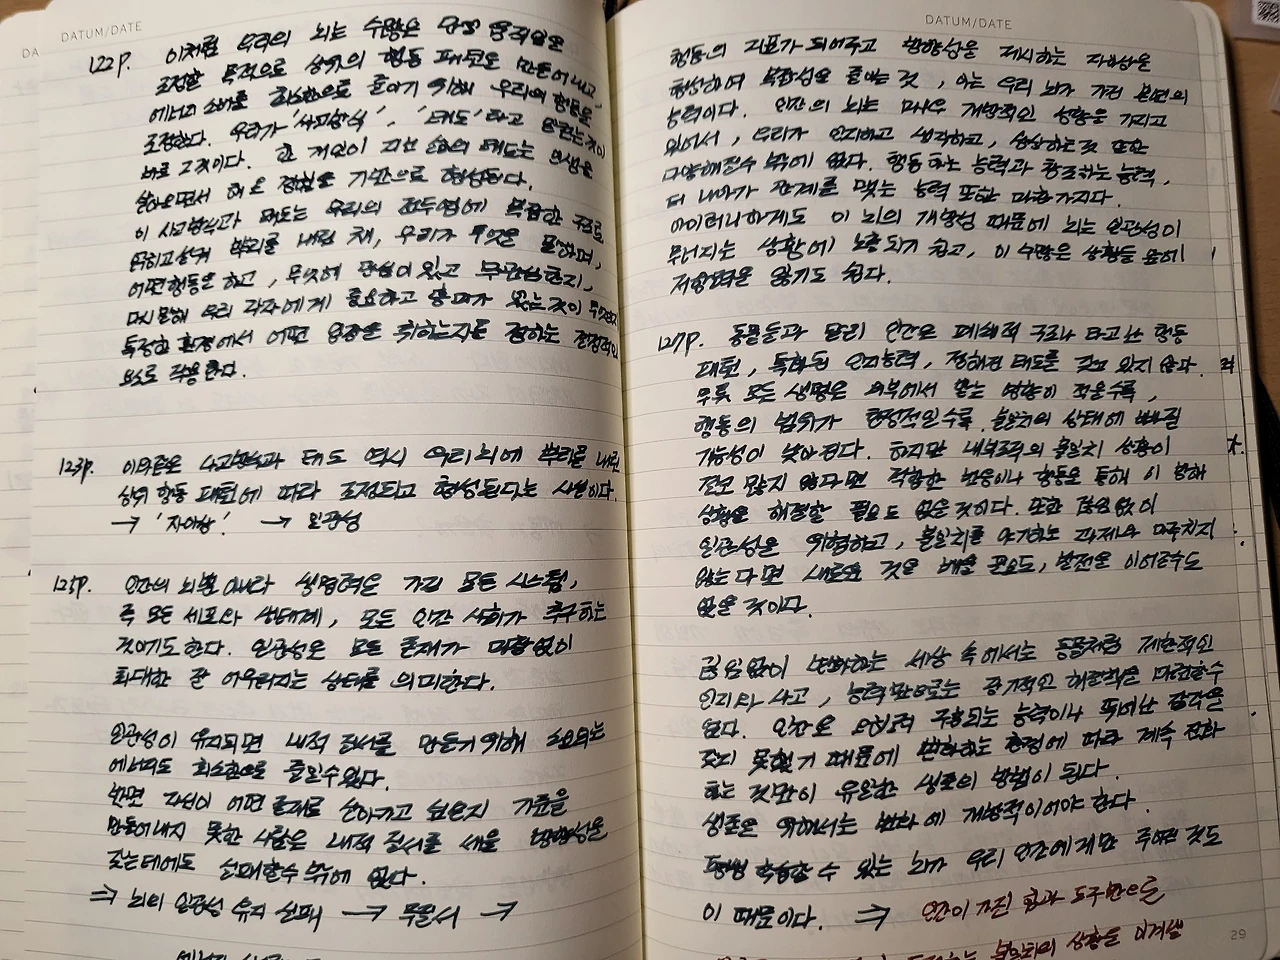 DATUM/DATE
122p. 이처럼 우리의 뇌는 수많은 단일 움직임을
조정할 목적으로 상위의 행동 패턴을 만들어내고,
에너지 소비를 최소한으로 줄이기 위해 우리의 행동을
조정한다. 우리가 '사고방식', '태도'라고 일컫는 것이
바로 그것이다. 한 개인이 지닌 삶의 태도는 인생을
살아오면서 해온 경험을 기반으로 형성된다.
이 사고방식과 태도는 우리의 전두엽에 복잡한 구조로
뿌리를 내린 채, 우리가 무엇을 하며,
어떤 행동을 하고, 무엇에 관심이 있고 무관심한지,
다시 말해 우리 각자에게 중요하고 의미가 있는 것이 무엇인지
특정한 환경에서 어떤 입장을 취하는지를 정하는 결정적인
요소로 작용한다.
123p. 이와 같은 사고방식과 태도 역시 우리 뇌에 뿌리를 내린
상위 행동 패턴에 따라 조정되고 형성된다는 사실이다.
→ '자아상'. → 일관성
125p. 인간의 뇌뿐 아니라 생명력을 가진 모든 시스템,
즉 모든 세포와 생태계, 모든 인간 사회가 추구하는
것이기도 한다. 일관성은 모든 존재가 마찰없이
최대한 잘 어우러지는 상태를 의미한다.
일관성이 유지되면 내적 질서를 만들기 위해 소요되는
에너지도 최소한으로 줄일 수 있다.
반면 자신이 어떤 존재로 살아가고 싶은지 기준을
만들어내지 못한 사람은 내적 질서를 세울 방향성을
갖는데에도 실패할 수 밖에 없다.
⇒ 뇌의 일관성 유지 실패 → 무질서 →
DATUM/DATE
행동의 지표가 되어주고 방향성을 제시하는 자아상을
형성하여 복잡성을 줄이는 것, 이는 우리 뇌가 가진 본연의
능력이다. 인간의 뇌는 매우 개방적인 성향을 가지고
있어서, 우리가 인지하고 생각하고, 상상하는 것 또한
다양해질 수 밖에 없다. 행동하는 능력과 창조하는 능력,
더 나아가 관계를 맺는 능력 또한 마찬가지다.
아이러니하게도 이 뇌의 개방성 때문에 뇌는 일관성이
무너지는 상황에 노출되기 쉽고, 이 수많은 상황들 속에
저항력을 잃기도 쉽다.
127p. 동물들과 달리 인간은 폐쇄적 구조나 타고난 행동
패턴, 특화된 인지능력, 정해진 태도를 갖고 있지 않다.
무릇 모든 생명은 외부에서 받는 영향이 적을수록,
행동의 범위가 한정적일수록 불일치의 상태에 빠질
가능성이 낮아진다. 하지만 내부조직의 불일치 상황이
결코 많지 않다면 적합한 반응이나 행동을 통해 이 방해
상황을 해결할 필요도 없을 것이다. 또한 끊임없이
일관성을 위협하고, 불일치를 야기하는 과제와 마주치지
않는다면 새로운 것을 배울 필요도, 발전을 이어갈수도
없을 것이다.
끊임없이 변화하는 세상 속에서는 동물처럼 제한적인
인지와 사고, 능력만으로는 장기적인 해결책을 마련할 수
없다. 인간은 구현되는 능력이나 뛰어난 감각을
갖지 못했기 때문에 변화하는 환경에 따라 계속 진화
하는 것만이 유일한 생존의 방법이 된다.
생존을 위해서는 변화에 개방적이어야 한다.
평생 학습할 수 있는 뇌가 우리 인간에게만 주어진 것도
이 때문이다. ⇒ 인간이 가진 힘과 도구만으로
불일치의 상황을 이겨낼
29